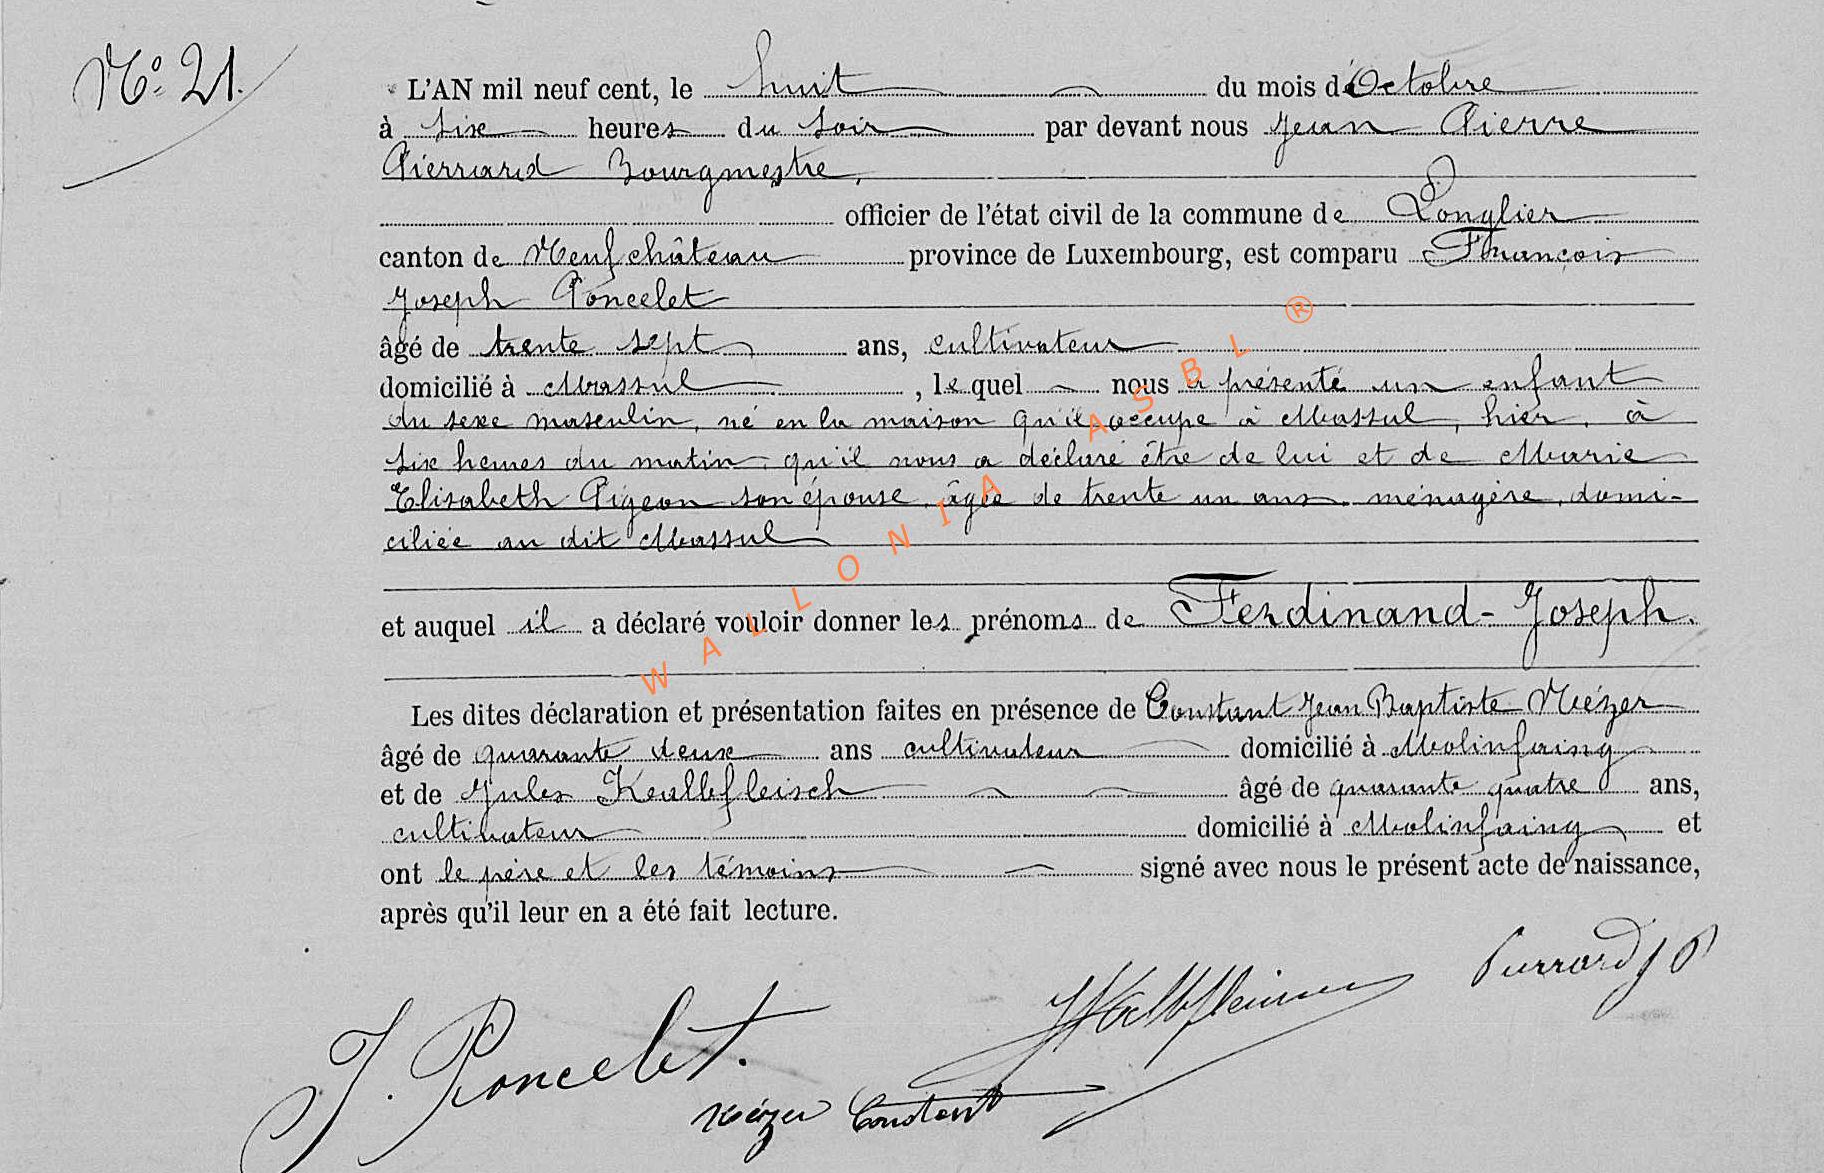 N° 21.
L'AN mil neuf cent, le huit du mois d'Octobre
à six heures du soir par devant nous Jean Pierre
Pierrard Bourgmestre,
officier de l'état civil de la commune de Longlier
canton de Neufchâteau province de Luxembourg, est comparu François
Joseph Poncelet
âgé de trente sept ans, cultivateur
domicilié à Massul, lequel nous a présenté un enfant
du sexe masculin, né en la maison qu'il occupe à Massul, hier, à
six heures du matin, qu'il nous a déclaré être de lui et de Marie
Elisabeth Pigeon son épouse, âgée de trente un ans, ménagère, domi-
ciliée au dit Massul
et auquel il a déclaré vouloir donner les prénoms de Ferdinand-Joseph.
Les dites déclaration et présentation faites en présence de Constant Jean Baptiste Nézer
âgé de quarante deux ans cultivateur domicilié à Molinfaing
et de Jules Kalbfleisch âgé de quarante quatre ans,
cultivateur domicilié à Molinfaing et
ont le père et les témoins signé avec nous le présent acte de naissance,
après qu'il leur en a été fait lecture.
Pierrard J P
J. Poncelet.
Nézer Constant
WALLONIA ASBL ®